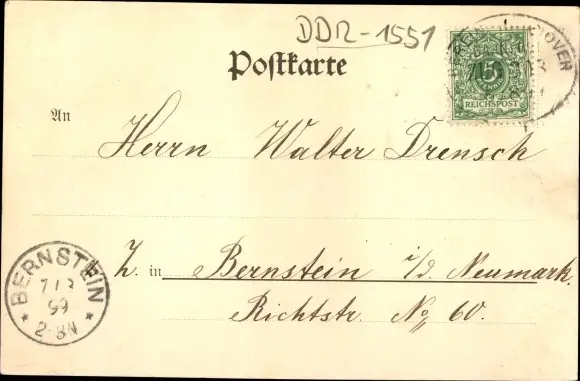 DDR-1551
Postkarte
5
REICHSPOST
HANNOVER
An
Herrn Walter Drensch
Z. in Bernstein i/d. Neumark.
Richtstr. No 60.
BERNSTEIN
99
2-8N